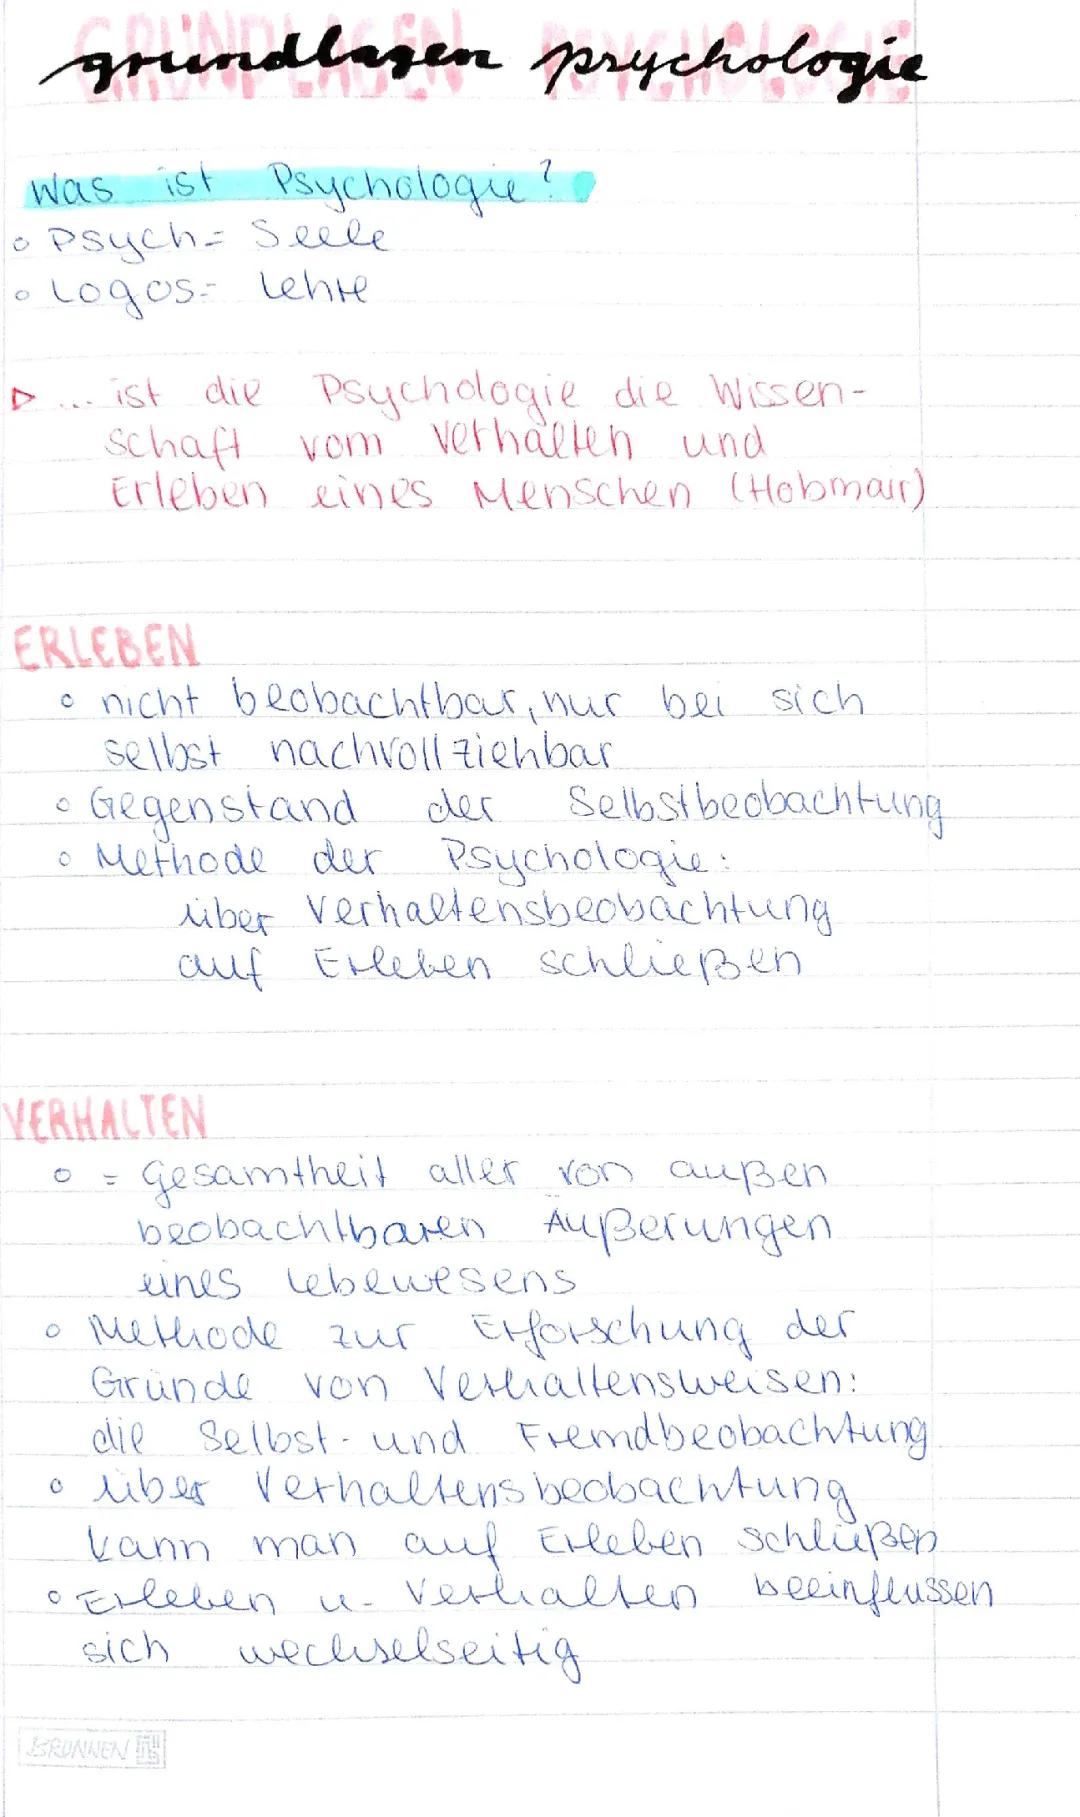 GRUNDLAGEN PSYCHOLOGIE
grundlagen psychologie
Was ist Psychologie?
o Psych= Seele
o Logos= Lehre
▷ ... ist die Psychologie die Wissen-
schaft vom Verhalten und
Erleben eines Menschen (Hobmair)
ERLEBEN
o nicht beobachtbar, nur bei sich
selbst nachvollziehbar
o Gegenstand der Selbstbeobachtung
o Methode der Psychologie:
über Verhaltensbeobachtung
auf Erleben schließen
VERHALTEN
o = Gesamtheit aller von außen
beobachtbaren Äußerungen
eines Lebewesens
o Methode zur Erforschung der
Gründe von Verhaltensweisen:
die Selbst- und Fremdbeobachtung
o über Verhaltensbeobachtung
kann man auf Erleben schließen
o Erleben u. Verhalten beeinflussen
sich wechselseitig
BRUNNEN